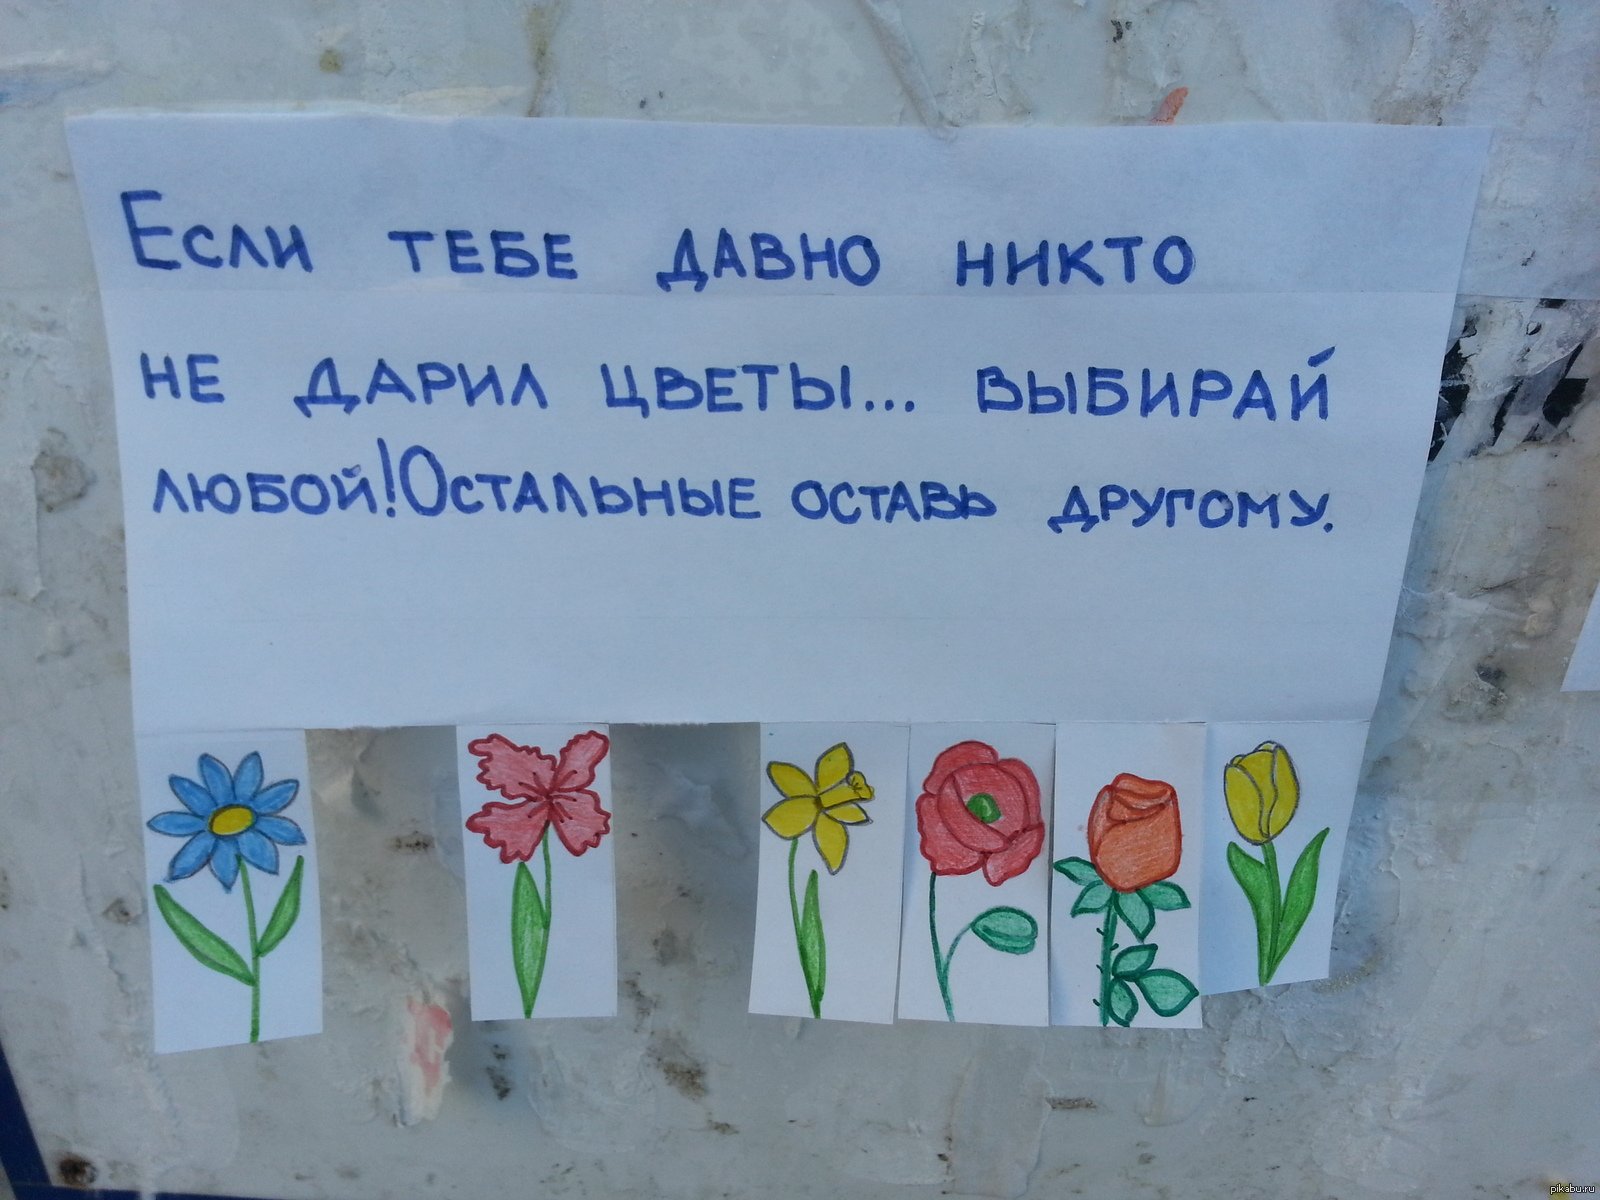 Если тебе давно никто
не дарил цветы... выбирай
любой! Остальные оставь другому.
pikabu.ru